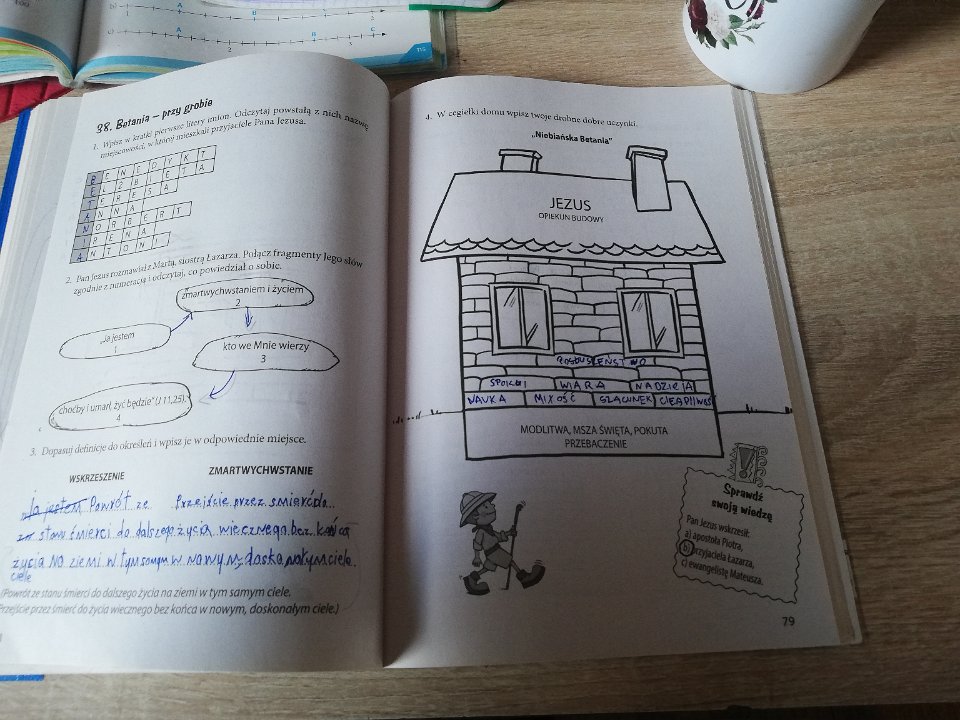 38. Betania – przy grobie
1. Wpisz w kratki pierwsze litery imion. Odczytaj powstałą z nich nazwę
miejscowości, w której mieszkali przyjaciele Pana Jezusa.
BENEDYKT
ELŻBIETA
TERESA
ANNA
NORBERT
IRENA
ANTONI
2. Pan Jezus rozmawiał z Martą, siostrą Łazarza. Połącz fragmenty Jego słów
zgodnie z numeracją i odczytaj, co powiedział o sobie.
zmartwychwstaniem i życiem
2
„Ja jestem
1
kto we Mnie wierzy
3
choćby i umarł, żyć będzie" (J 11,25).
4
3. Dopasuj definicje do określeń i wpisz je w odpowiednie miejsce.
WSKRZESZENIE
ZMARTWYCHWSTANIE
Ja jestem Powrót ze
stanu śmierci do dalszego
życia na ziemi w tym samym
ciele
Przejście przez śmierć do
życia wiecznego bez końca
w nowym, doskonałym ciele.
(Powrót ze stanu śmierci do dalszego życia na ziemi w tym samym ciele.
Przejście przez śmierć do życia wiecznego bez końca w nowym, doskonałym ciele.)
4. W cegiełki domu wpisz twoje drobne dobre uczynki.
„Niebiańska Betania"
JEZUS
OPIEKUN BUDOWY
POSŁUSZEŃSTWO
SPOKÓJ WIARA NADZIEJA
NAUKA MIŁOŚĆ SZACUNEK CIERPLIWOŚĆ
MODLITWA, MSZA ŚWIĘTA, POKUTA
PRZEBACZENIE
Sprawdź
swoją wiedzę
Pan Jezus wskrzesił:
a) apostoła Piotra,
b) przyjaciela Łazarza,
c) ewangelistę Mateusza.
79